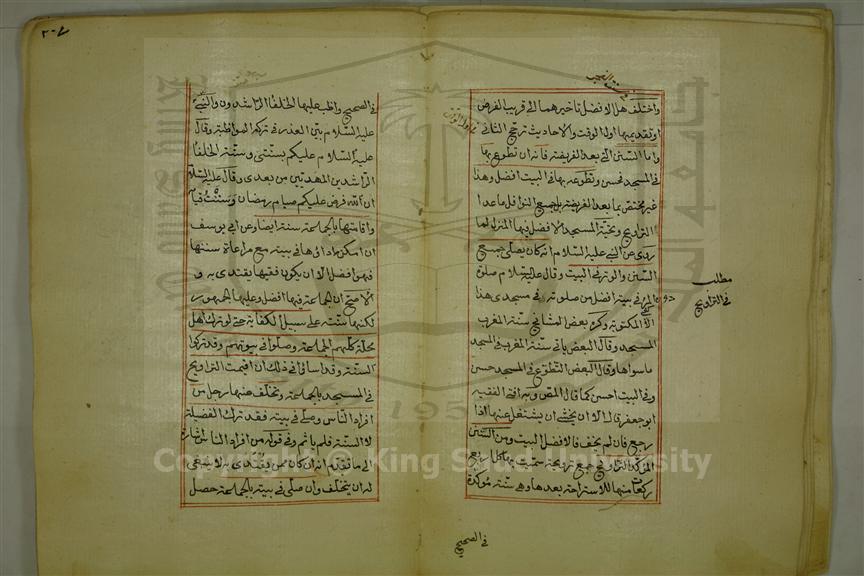 واختلف هل الافضل تاخيرهما الى قريب الفرض
او تقديمها اول الوقت والاحاديث ترجح الثاني
واما السنن التي بعد الفريضة فانه ان تطوع بها
في المسجد فحسن وتطوعه بها في البيت افضل وهذا
غير مختص بما بعد الفريضة بل جميع النوافل ما عدا
التراويح وتحية المسجد الافضل فيها المنزل لما
روى عن النبي عليه السلام انه كان يصلي جميع
السنن والوتر في البيت وقال عليه السلام صلوة
المرء في بيته افضل من صلوته في مسجدي هذا
الا المكتوبة وكره بعض المشائخ سنة المغرب في
المسجد وقال البعض ياتي سنة المغرب في المسجد
ما سواها وقال البعض التطوع في المسجد حسن
وفي البيت احسن كما قال المص وبه افتى الفقيه
ابو جعفر قال الا ان يخشى ان يشتغل عنها اذا
رجع فان لم يخف فالافضل البيت ومن السنن
المؤكدة التراويح جمع ترويحة سميت بها كل اربع
ركعات منها للاستراحة بعدها وهي سنة مؤكدة
مطلب
في التراويح
في الصحيح
في الصحيح واظب عليها الخلفا الراشدون والنبي
عليه السلام بين العذر في تركه المواظبة وقال
عليه السلام عليكم بسنتي وسنة الخلفا
الراشدين المهديين من بعدي وقال عليه السلام
ان الله فرض عليكم صيام رمضان وسننت قيامه
واقامتها بالجماعة سنة ايضا وعن ابي يوسف
ان امكنه اداؤها في بيته مع مراعاة سننها
فهو افضل الا ان يكون فقيها يقتدى به و
الاصح ان الجماعة فيها افضل وعليها الجمهور
لكنها سنة على سبيل الكفاية حتى لو ترك اهل
محلة كلهم الجماعة وصلوا في بيوتهم وقد تركوا
السنة وقد اساؤا في ذلك ان اقيمت التراويح
في المسجد بالجماعة وتخلف عنها رجل من
افراد الناس وصلى في بيته فقد ترك الفضيلة
لا السنة فلم ياثم وفي قوله من افراد الناس اشارة
الى ما تقدم انه ان كان ممن يقتدى به لا ينبغي
له ان يتخلف وان صلى في بيته بالجماعة حصل
Copyright © King Saud University